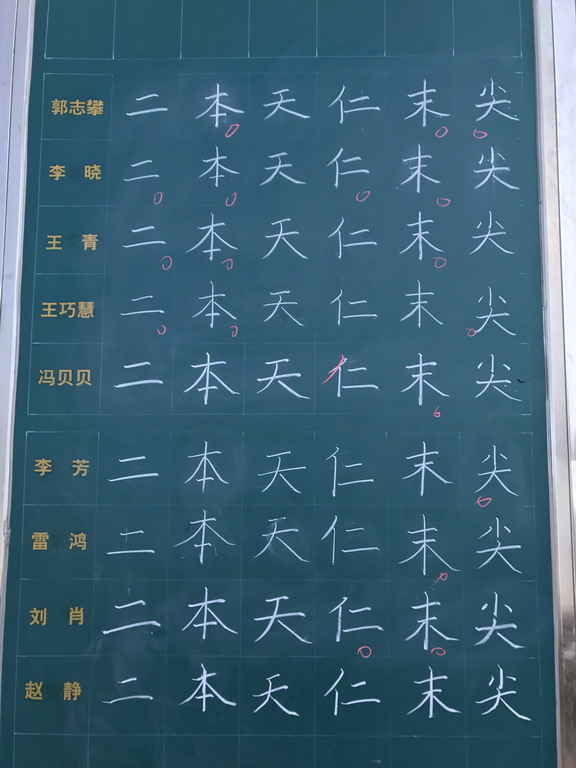 郭志攀 二 本 天 仁 末 尖
李晓 二 本 天 仁 末 尖
王青 二 本 天 仁 末 尖
王巧慧 二 本 天 仁 末 尖
冯贝贝 二 本 天 仁 末 尖
李芳 二 本 天 仁 末 尖
雷鸿 二 本 天 仁 末 尖
刘肖 二 本 天 仁 末 尖
赵静 二 本 天 仁 末 尖